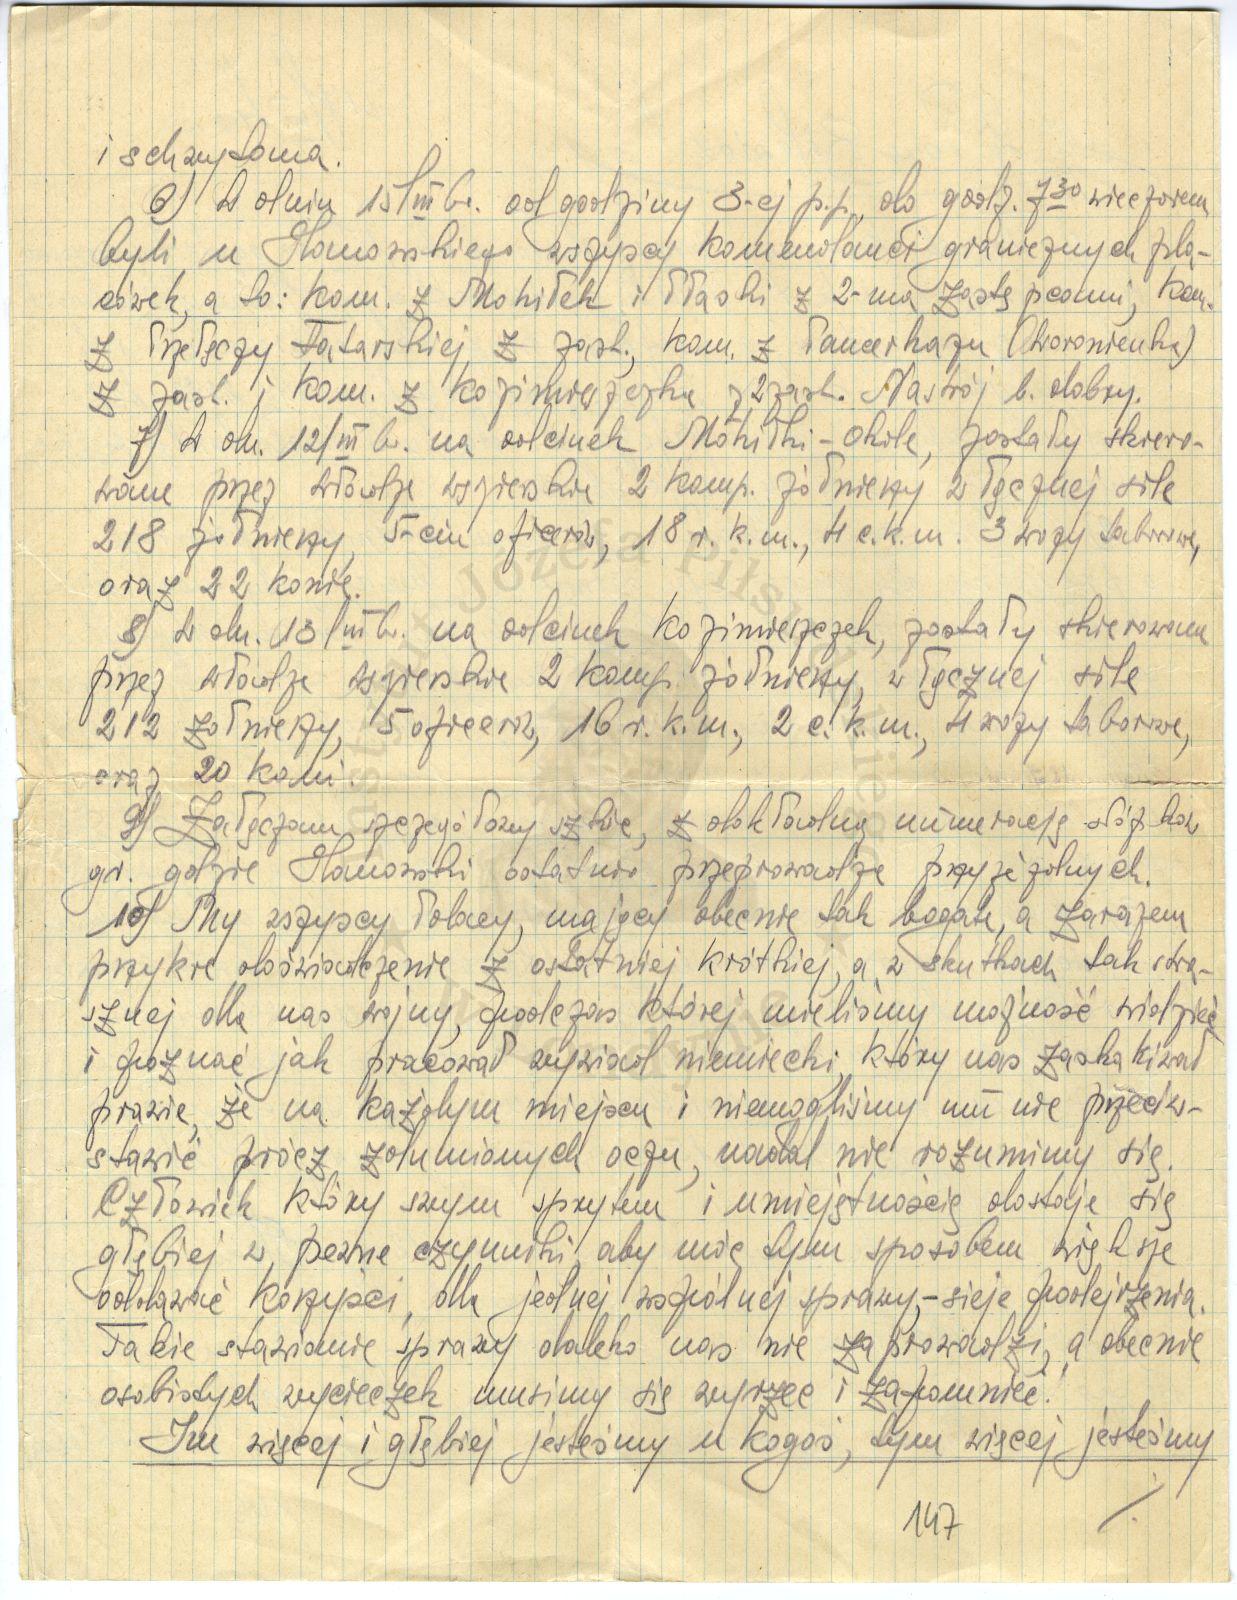 i schwytana.
6) W dniu 15/III br. od godziny 3-ej p.p. do godz. 7³⁰ wieczorem
byli u Hanowskiego wszyscy komendanci granicznych pla-
cówek, a to: kom. z Mohiłek i z 2-ma zastępcami, kom.
z Przełęczy Tatarskiej z zast., kom. z (Woronienka)
z zast. i kom. z Kozimierzczka z 2 zast. Nastrój b. dobry.
7) W dn. 12/III br. na odcinek Mohiłki - Okile, zostały skiero-
wane przez władze węgierskie 2 komp. żołnierzy w łącznej sile
218 żołnierzy, 5-ciu oficerów, 18 r.k.m., 4 c.k.m. 3 wozy taborowe,
oraz 22 konie.
8) W dn. 13/III br. na odcinek Kozimierzczek, zostały skierowane
przez władze węgierskie 2 komp. żołnierzy, w łącznej sile
212 żołnierzy, 5 oficerów, 16 r.k.m., 2 c.k.m., 4 wozy taborowe,
oraz 20 koni.
9) Załączam szczegółowy szkic, z dokładną numeracją słópków
gr. gdzie Hanowski ostatnio przeprowadza przyjezdnych.
10) My wszyscy Polacy, mający obecnie tak bogate, a zarazem
przykre doświadczenie z ostatniej krótkiej, a w skutkach tak stra-
sznej dla nas wojny, podczas której mieliśmy możność widzieć
i poznać jak pracował wywiad niemiecki, który nas zaskakiwał
prawie, że na każdym miejscu i niemogliśmy mu nic przeciw-
stawić prócz zdumionych oczu, nadal nie rozumimy się.
Człowiek który swym sprytem i umiejętnością dostaje się
głębiej w pewne czynniki, aby móc tym sposobem większe
oddawać korzyści, dla jednej wspólnej sprawy, - sieje podejrzenia.
Takie stawianie sprawy daleko nas nie zaprowadzi, a obecnie
osobistych wycieczek musimy się wyrzec i zapomnieć!
Im więcej i głębiej jesteśmy u kogoś, tym więcej jesteśmy
147 ./.